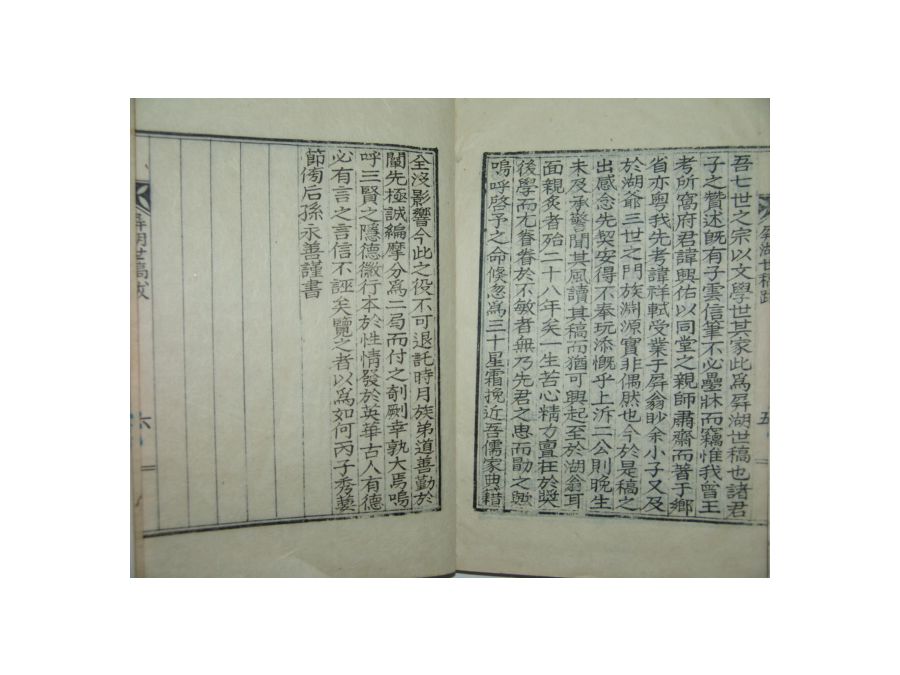 屛湖世稿跋
五
吾七世之宗以文學世其家此爲屛湖世稿也諸君
子之贊述旣有子雲信筆不必疊牀而竊惟我曾王
考所窩府君諱興佑以同堂之親師肅齋而著于鄕
省亦粤我先考諱祥軾受業于屛翁眇余小子又及
於湖爺三世之門族淵源實非偶然也今於是稿之
出感念先契安得不奉玩添慨乎上泝二公則晩生
未及承警聞其風讀其稿而猶可興起至於湖翁耳
面親炙者殆二十八年矣一生苦心精力亶在於奬
後學而尤眷眷於不敏者無乃先君之思而勖之歟
嗚呼啓予之命倏忽爲三十星霜挽近吾儒家典籍
全沒影響今此之役不可退託時月族弟道善勤於
闡先極誠編摩分爲二局而付之剞劂幸孰大焉嗚
呼三賢之隱德徽行本於性情發於英華古人有德
必有言之言信不誣矣覽之者以爲如何丙子秀葽
節傍后孫永善謹書
屛湖世稿跋
六